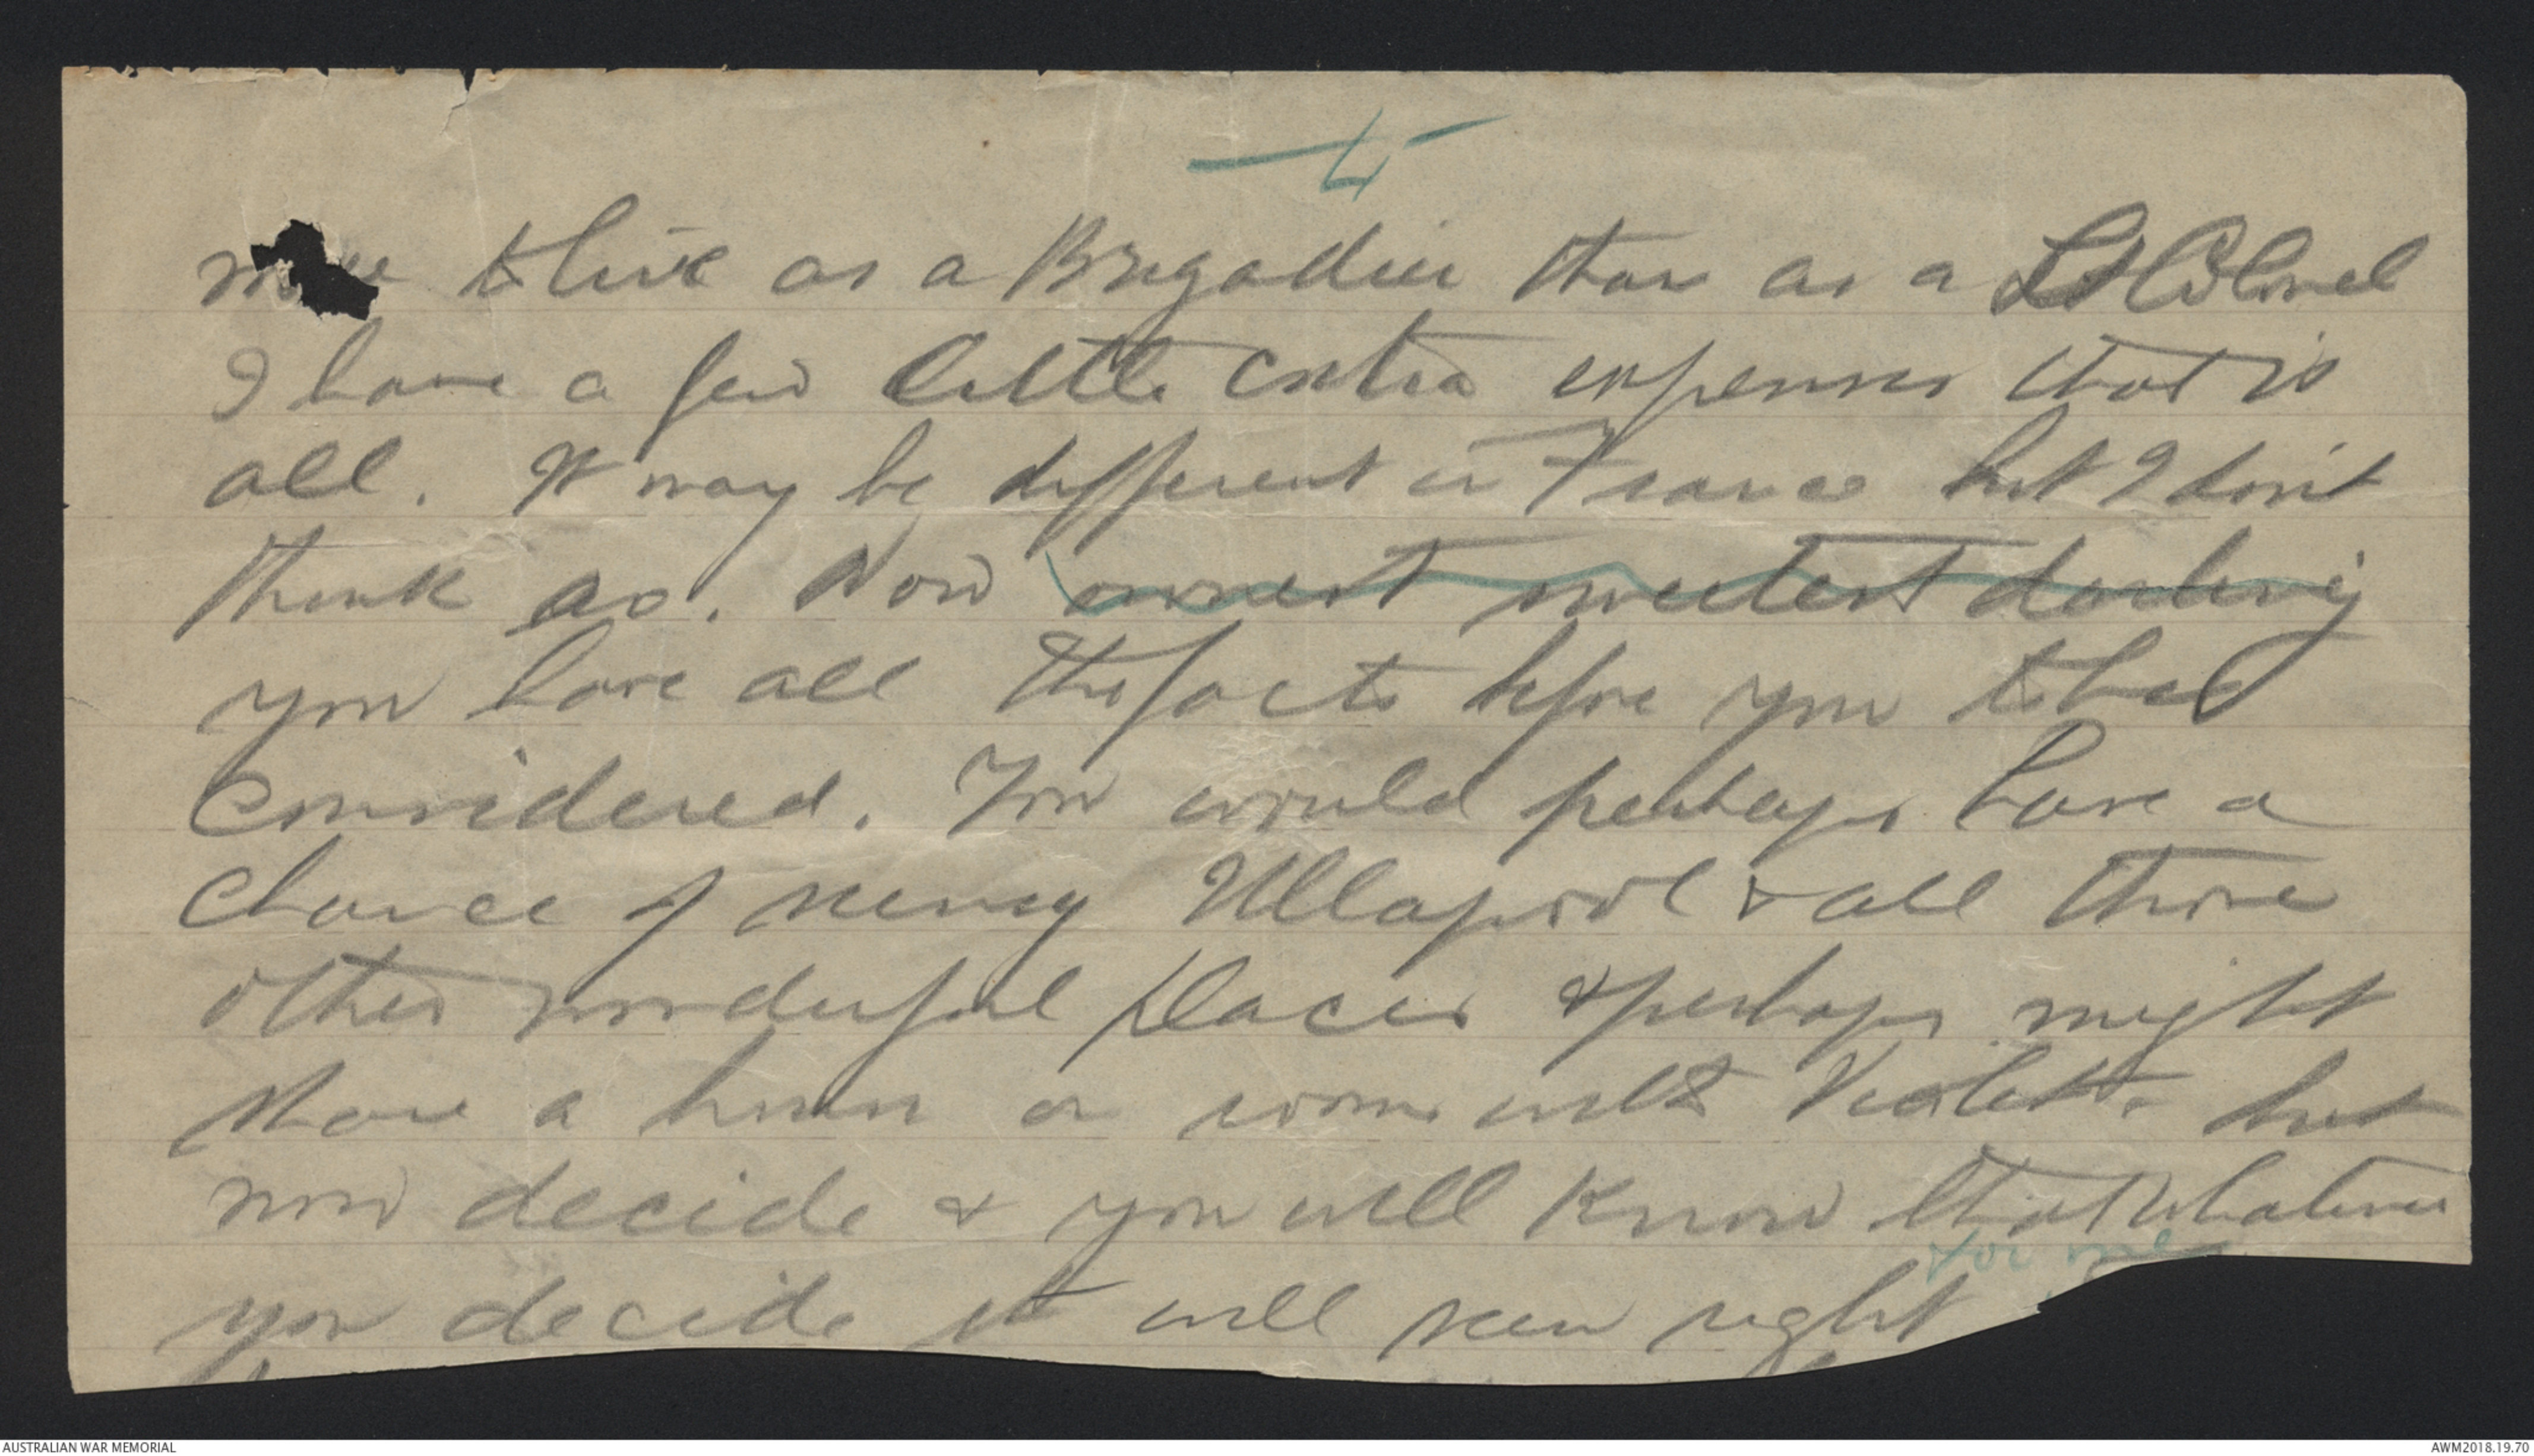 4
more to live as a Brigadier than as a Lt Colonel
I have a few little extra expenses that is
all. It may be different in France but I don't
think so. Now ownest sweetest darling
you have all the facts before you to be
considered. You would perhaps have a
chance of seeing Ullapool & all those
other wonderful places & perhaps might
share a house or rooms with Violet - but
now decide & you will know that whatever
for me
you decide it will seem right
AUSTRALIAN WAR MEMORIAL
AWM2018.19.70